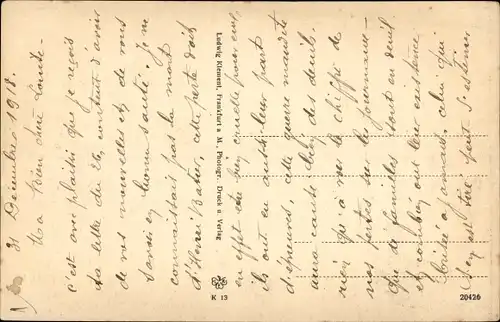 31 Décembre 1918.
Ma Bien chère Louise
C'est avec plaisir que je reçois
ta lettre du 26, content d'avoir
de vos nouvelles et de vous
savoir en bonne santé. Je
connaissais pas la mort
d'Henri, cette perte doit
en effet être cruelle pour eux,
ils ont eu aussi leur part
d'épreuves, cette guerre maudite
aura causé bien des deuils.
rien qu'à voir le chiffre de
nos pertes sur les journaux
que de familles sont en deuil
et combien ont leur existence
brisée à jamais, celui qui
s'en est tiré peut s'estimer
Ludwig Klement, Frankfurt a. M., Photogr. Druck u. Verlag
K 13
20426